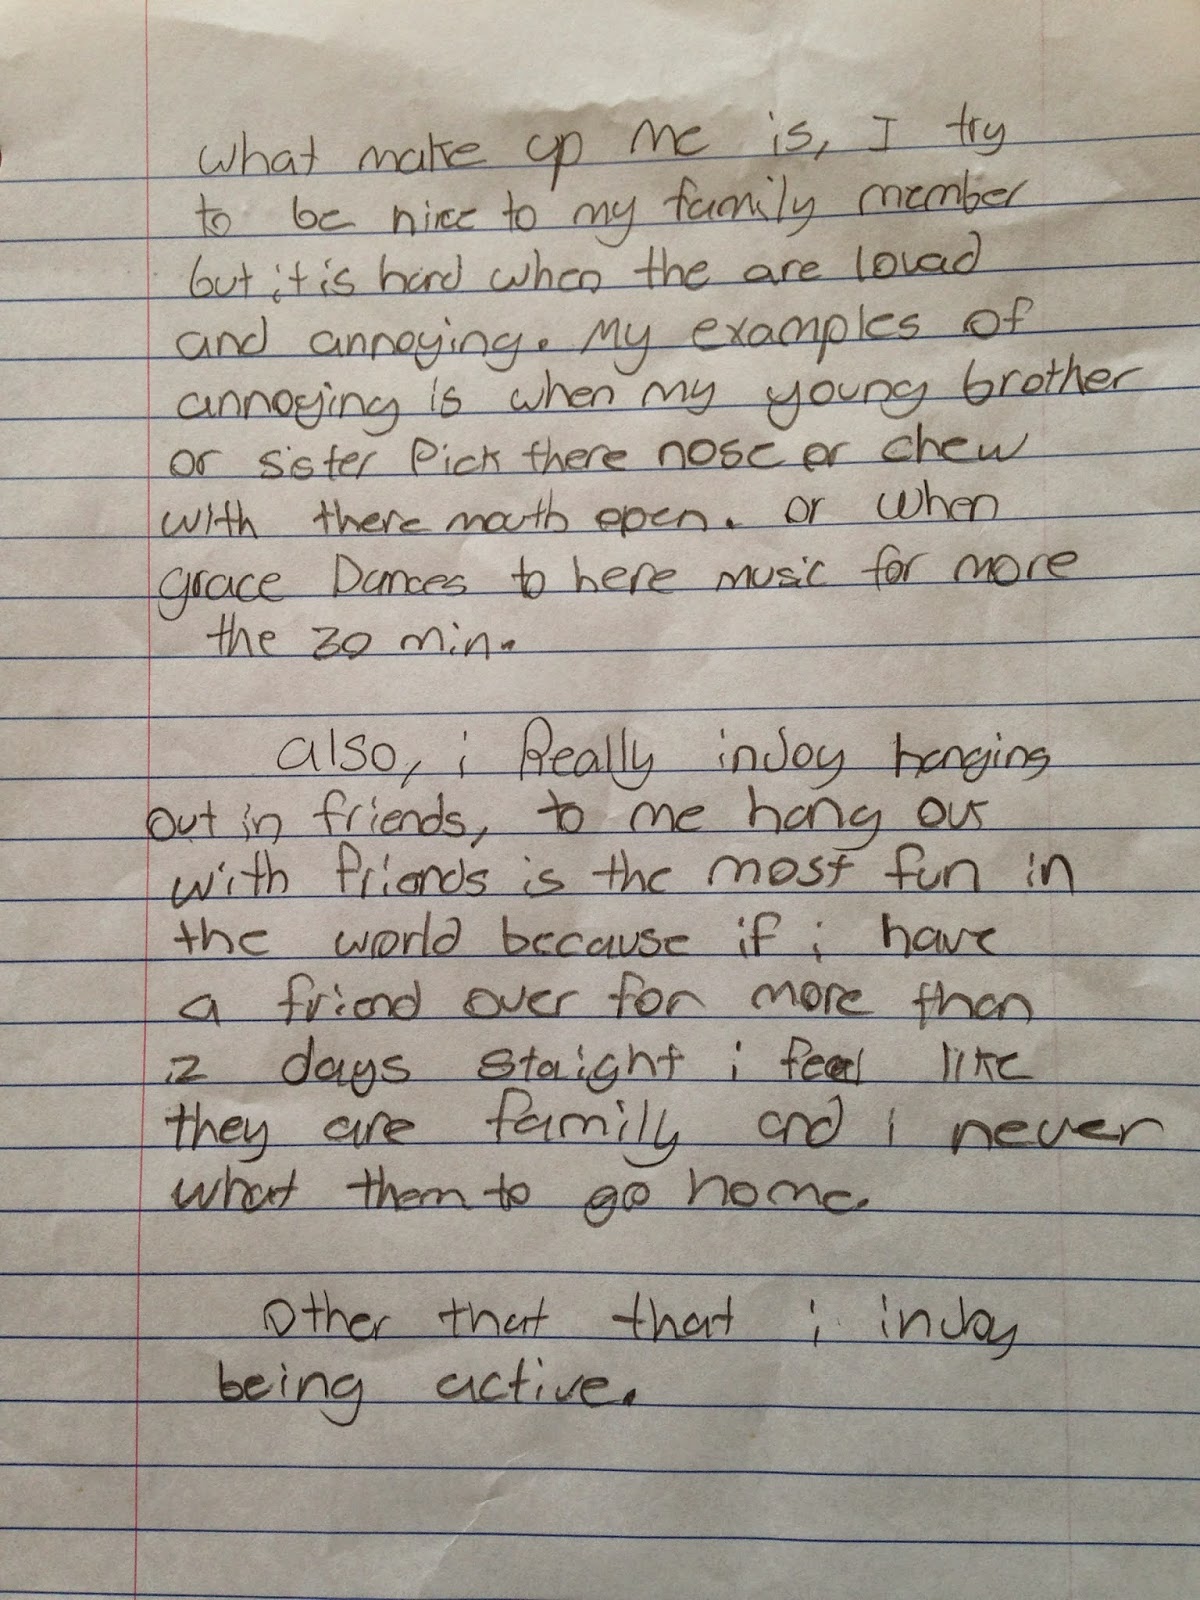 what make up me is, I try
to be nice to my family member
but it is hard when the are louad
and annoying. My examples of
annoying is when my young brother
or sister Pick there nose or chew
with there mouth open. or when
grace Dances to here music for more
the 30 min.
also, i Really inJoy hanging
out in friends, to me hang out
with friends is the most fun in
the world because if i have
a friend over for more than
2 days staight i feel like
they are family and i never
what them to go home.
Other that that i inJoy
being active.